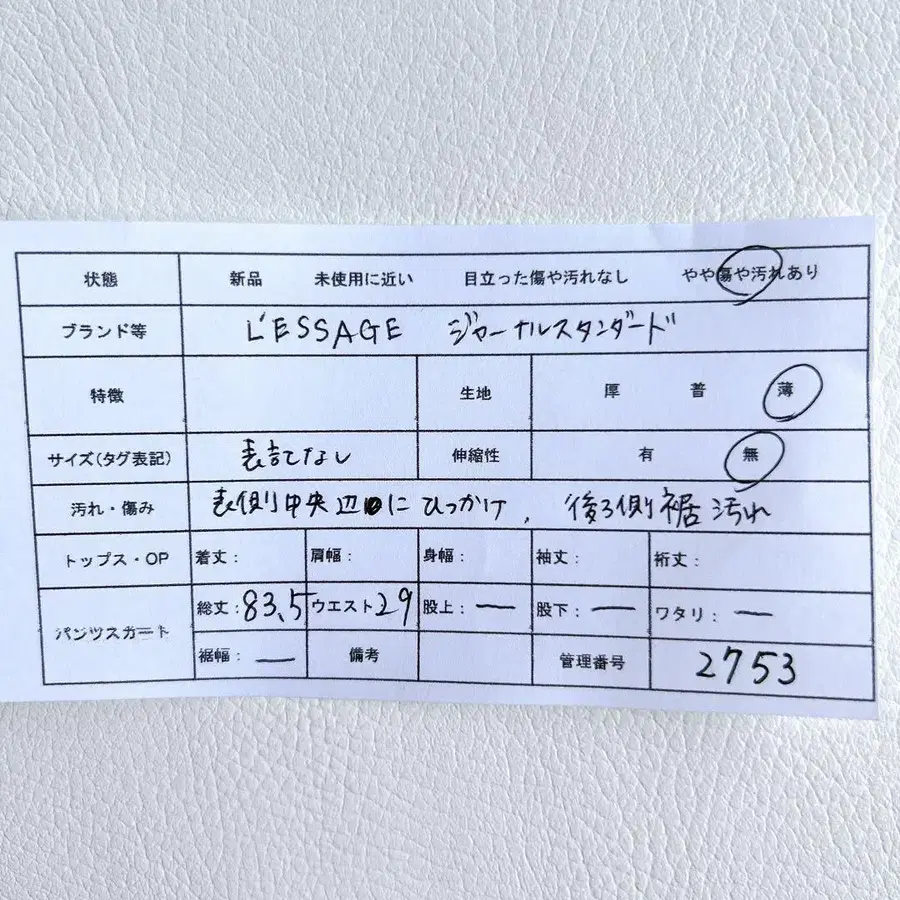 状態 新品 未使用に近い 目立った傷や汚れなし やや傷や汚れあり
ブランド等 L'ESSAGE ジャーナルスタンダード
特徴 生地 厚 普 薄
サイズ(タグ表記) 表記なし 伸縮性 有 無
汚れ・傷み 表側中央辺りにひっかけ, 後ろ側裾汚れ
トップス・OP 着丈: 肩幅: 身幅: 袖丈: 裄丈:
パンツスカート 総丈:83.5 ウエスト29 股上:ー 股下:ー ワタリ:ー
裾幅:ー 備考 管理番号 2753